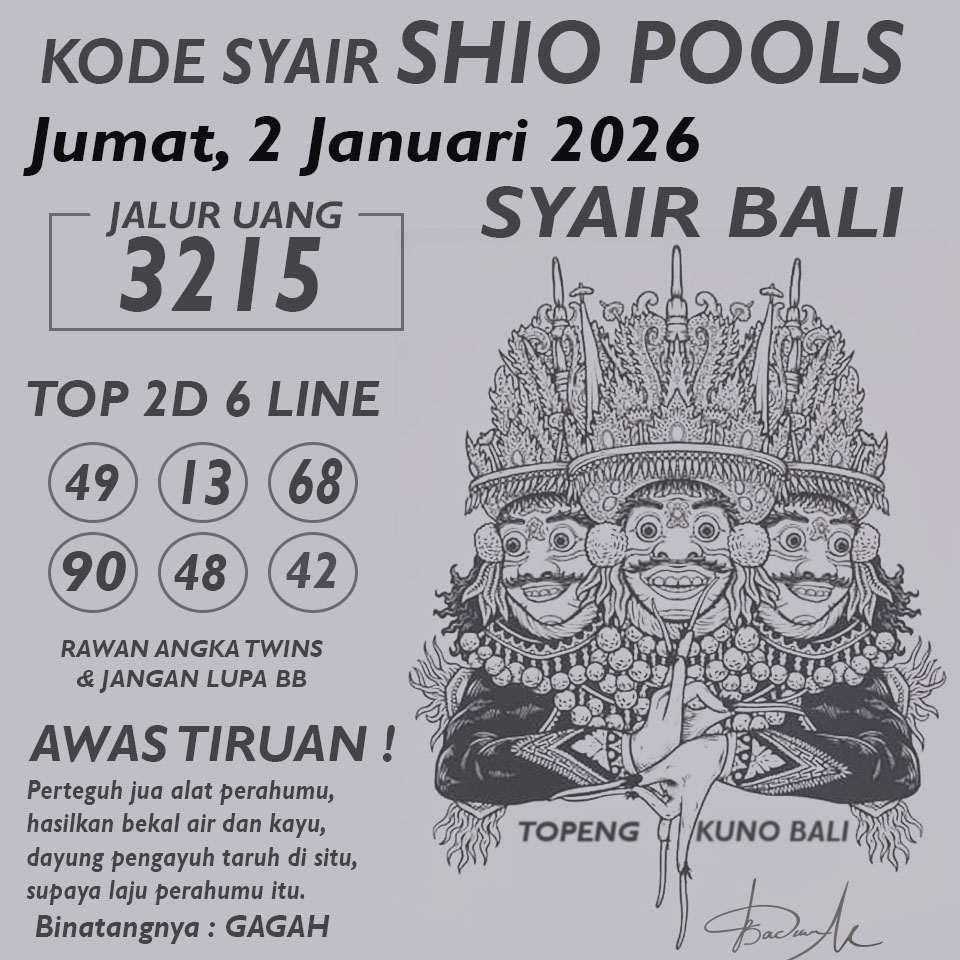 KODE SYAIR SHIO POOLS
Jumat, 2 Januari 2026
SYAIR BALI
JALUR UANG
3215
TOP 2D 6 LINE
49 13 68
90 48 42
RAWAN ANGKA TWINS
& JANGAN LUPA BB
AWAS TIRUAN !
Perteguh jua alat perahumu,
hasilkan bekal air dan kayu,
dayung pengayuh taruh di situ,
supaya laju perahumu itu.
Binatangnya : GAGAH
TOPENG KUNO BALI